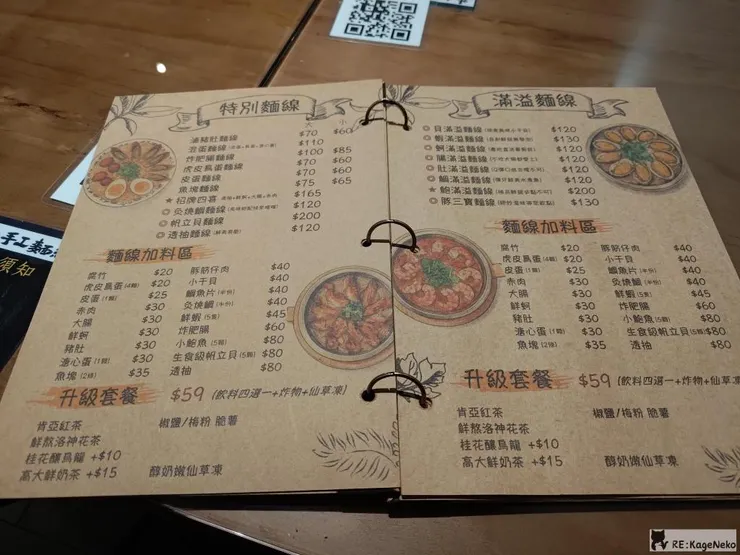 特別麵線
大 小
滷豬肚麵線 $70 $60
混蛋麵線 $110
炸肥腸麵線 $100 $85
虎皮鳥蛋麵線 $70 $60
皮蛋麵線 $70 $60
魚塊麵線 $75 $65
★ 招牌四喜 $165
◎ 炙燒鯛麵線 $120
◎ 帆立貝麵線 $200
◎ 透抽麵線 $120
麵線加料區
腐竹 $20
虎皮鳥蛋(4顆) $20
皮蛋(1顆) $25
赤肉 $30
大腸 $30
鮮蚵 $30
豬肚 $30
溏心蛋(1顆) $30
魚塊(2條) $35
豚筋仔肉 $40
小干貝 $40
鯛魚片(半份) $40
炙燒鯛(半份) $40
鮮蝦(5隻) $45
炸肥腸 $60
小鮑魚(5顆) $80
生食級帆立貝(5顆) $80
透抽 $80
升級套餐 $59 (飲料四選一+炸物+仙草凍)
肯亞紅茶
鮮熬洛神花茶
桂花釀烏龍 +$10
高大鮮奶茶 +$15
椒鹽/梅粉 脆薯
醇奶嫩仙草凍
滿溢麵線
◎ 貝滿溢麵線 $120
◎ 蝦滿溢麵線 $130
◎ 蚵滿溢麵線 $120
◎ 腸滿溢麵線 $120
◎ 肚滿溢麵線 $120
◎ 鯛滿溢麵線 $120
★ 鮑滿溢麵線 $200
◎ 豚三寶麵線 $130
麵線加料區
腐竹 $20
虎皮鳥蛋(4顆) $20
皮蛋(1顆) $25
赤肉 $30
大腸 $30
鮮蚵 $30
豬肚 $30
溏心蛋(1顆) $30
魚塊(2條) $35
豚筋仔肉 $40
小干貝 $40
鯛魚片(半份) $40
炙燒鯛(半份) $40
鮮蝦(5隻) $45
炸肥腸 $60
小鮑魚(5顆) $80
生食級帆立貝(5顆) $80
透抽 $80
升級套餐 $59 (飲料四選一+炸物+仙草凍)
肯亞紅茶
鮮熬洛神花茶
桂花釀烏龍 +$10
高大鮮奶茶 +$15
椒鹽/梅粉 脆薯
醇奶嫩仙草凍
手工麵
須知
RE:KageNeko